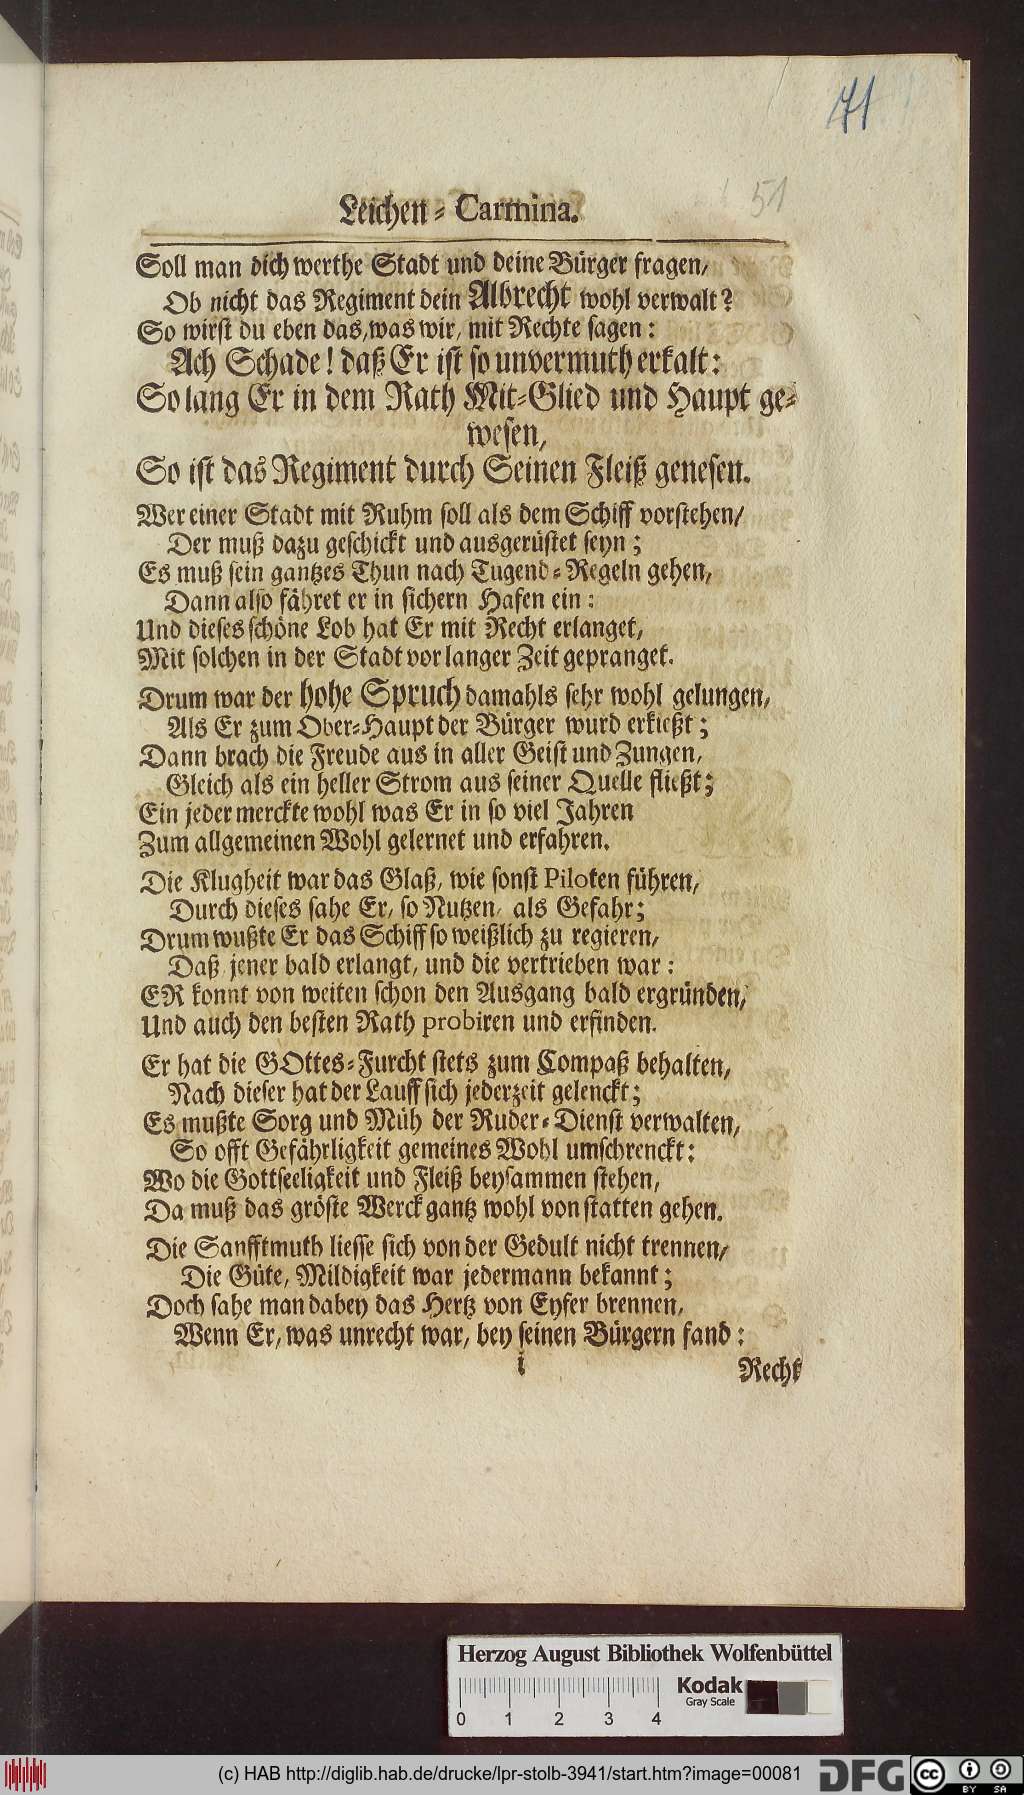 71
51
Leichen-Carmina.
Soll man dich werthe Stadt und deine Bürger fragen/
Ob nicht das Regiment dein Albrecht wohl verwalt?
So wirst du eben das, was wir, mit Rechte sagen:
Ach Schade! daß Er ist so unvermuth erkalt:
So lang Er in dem Rath Mit-Glied und Haupt ge-
wesen,
So ist das Regiment durch Seinen Fleiß genesen.
Wer einer Stadt mit Ruhm soll als dem Schiff vorstehen/
Der muß dazu geschickt und ausgerüstet seyn;
Es muß sein gantzes Thun nach Tugend-Regeln gehen,
Dann also fähret er in sichern Hafen ein:
Und dieses schöne Lob hat Er mit Recht erlanget,
Mit solchen in der Stadt vor langer Zeit gepranget.
Drum war der hohe Spruch damahls sehr wohl gelungen,
Als Er zum Ober-Haupt der Bürger wurd erkießt;
Dann brach die Freude aus in aller Geist und Zungen,
Gleich als ein heller Strom aus seiner Quelle fließt;
Ein jeder merckte wohl was Er in so viel Jahren
Zum allgemeinen Wohl gelernet und erfahren.
Die Klugheit war das Glaß, wie sonst Piloten führen,
Durch dieses sahe Er, so Nutzen, als Gefahr;
Drum wußte Er das Schiff so weißlich zu regieren,
Daß jener bald erlangt, und die vertrieben war:
ER konnt von weiten schon den Ausgang bald ergründen,
Und auch den besten Rath probiren und erfinden.
Er hat die GOttes-Furcht stets zum Compaß behalten,
Nach dieser hat der Lauff sich jederzeit gelenckt;
Es mußte Sorg und Müh der Ruder-Dienst verwalten,
So offt Gefährligkeit gemeines Wohl umschrenckt:
Wo die Gottseeligkeit und Fleiß beysammen stehen,
Da muß das gröste Werck gantz wohl von statten gehen.
Die Sanfftmuth liesse sich von der Gedult nicht trennen/
Die Güte, Mildigkeit war jedermann bekannt;
Doch sahe man dabey das Hertz von Eyfer brennen,
Wenn Er, was unrecht war, bey seinen Bürgern fand:
i
Recht
Herzog August Bibliothek Wolfenbüttel
Kodak
Gray Scale
0 1 2 3 4
(c) HAB http://diglib.hab.de/drucke/lpr-stolb-3941/start.htm?image=00081
DFG
cc
BY SA